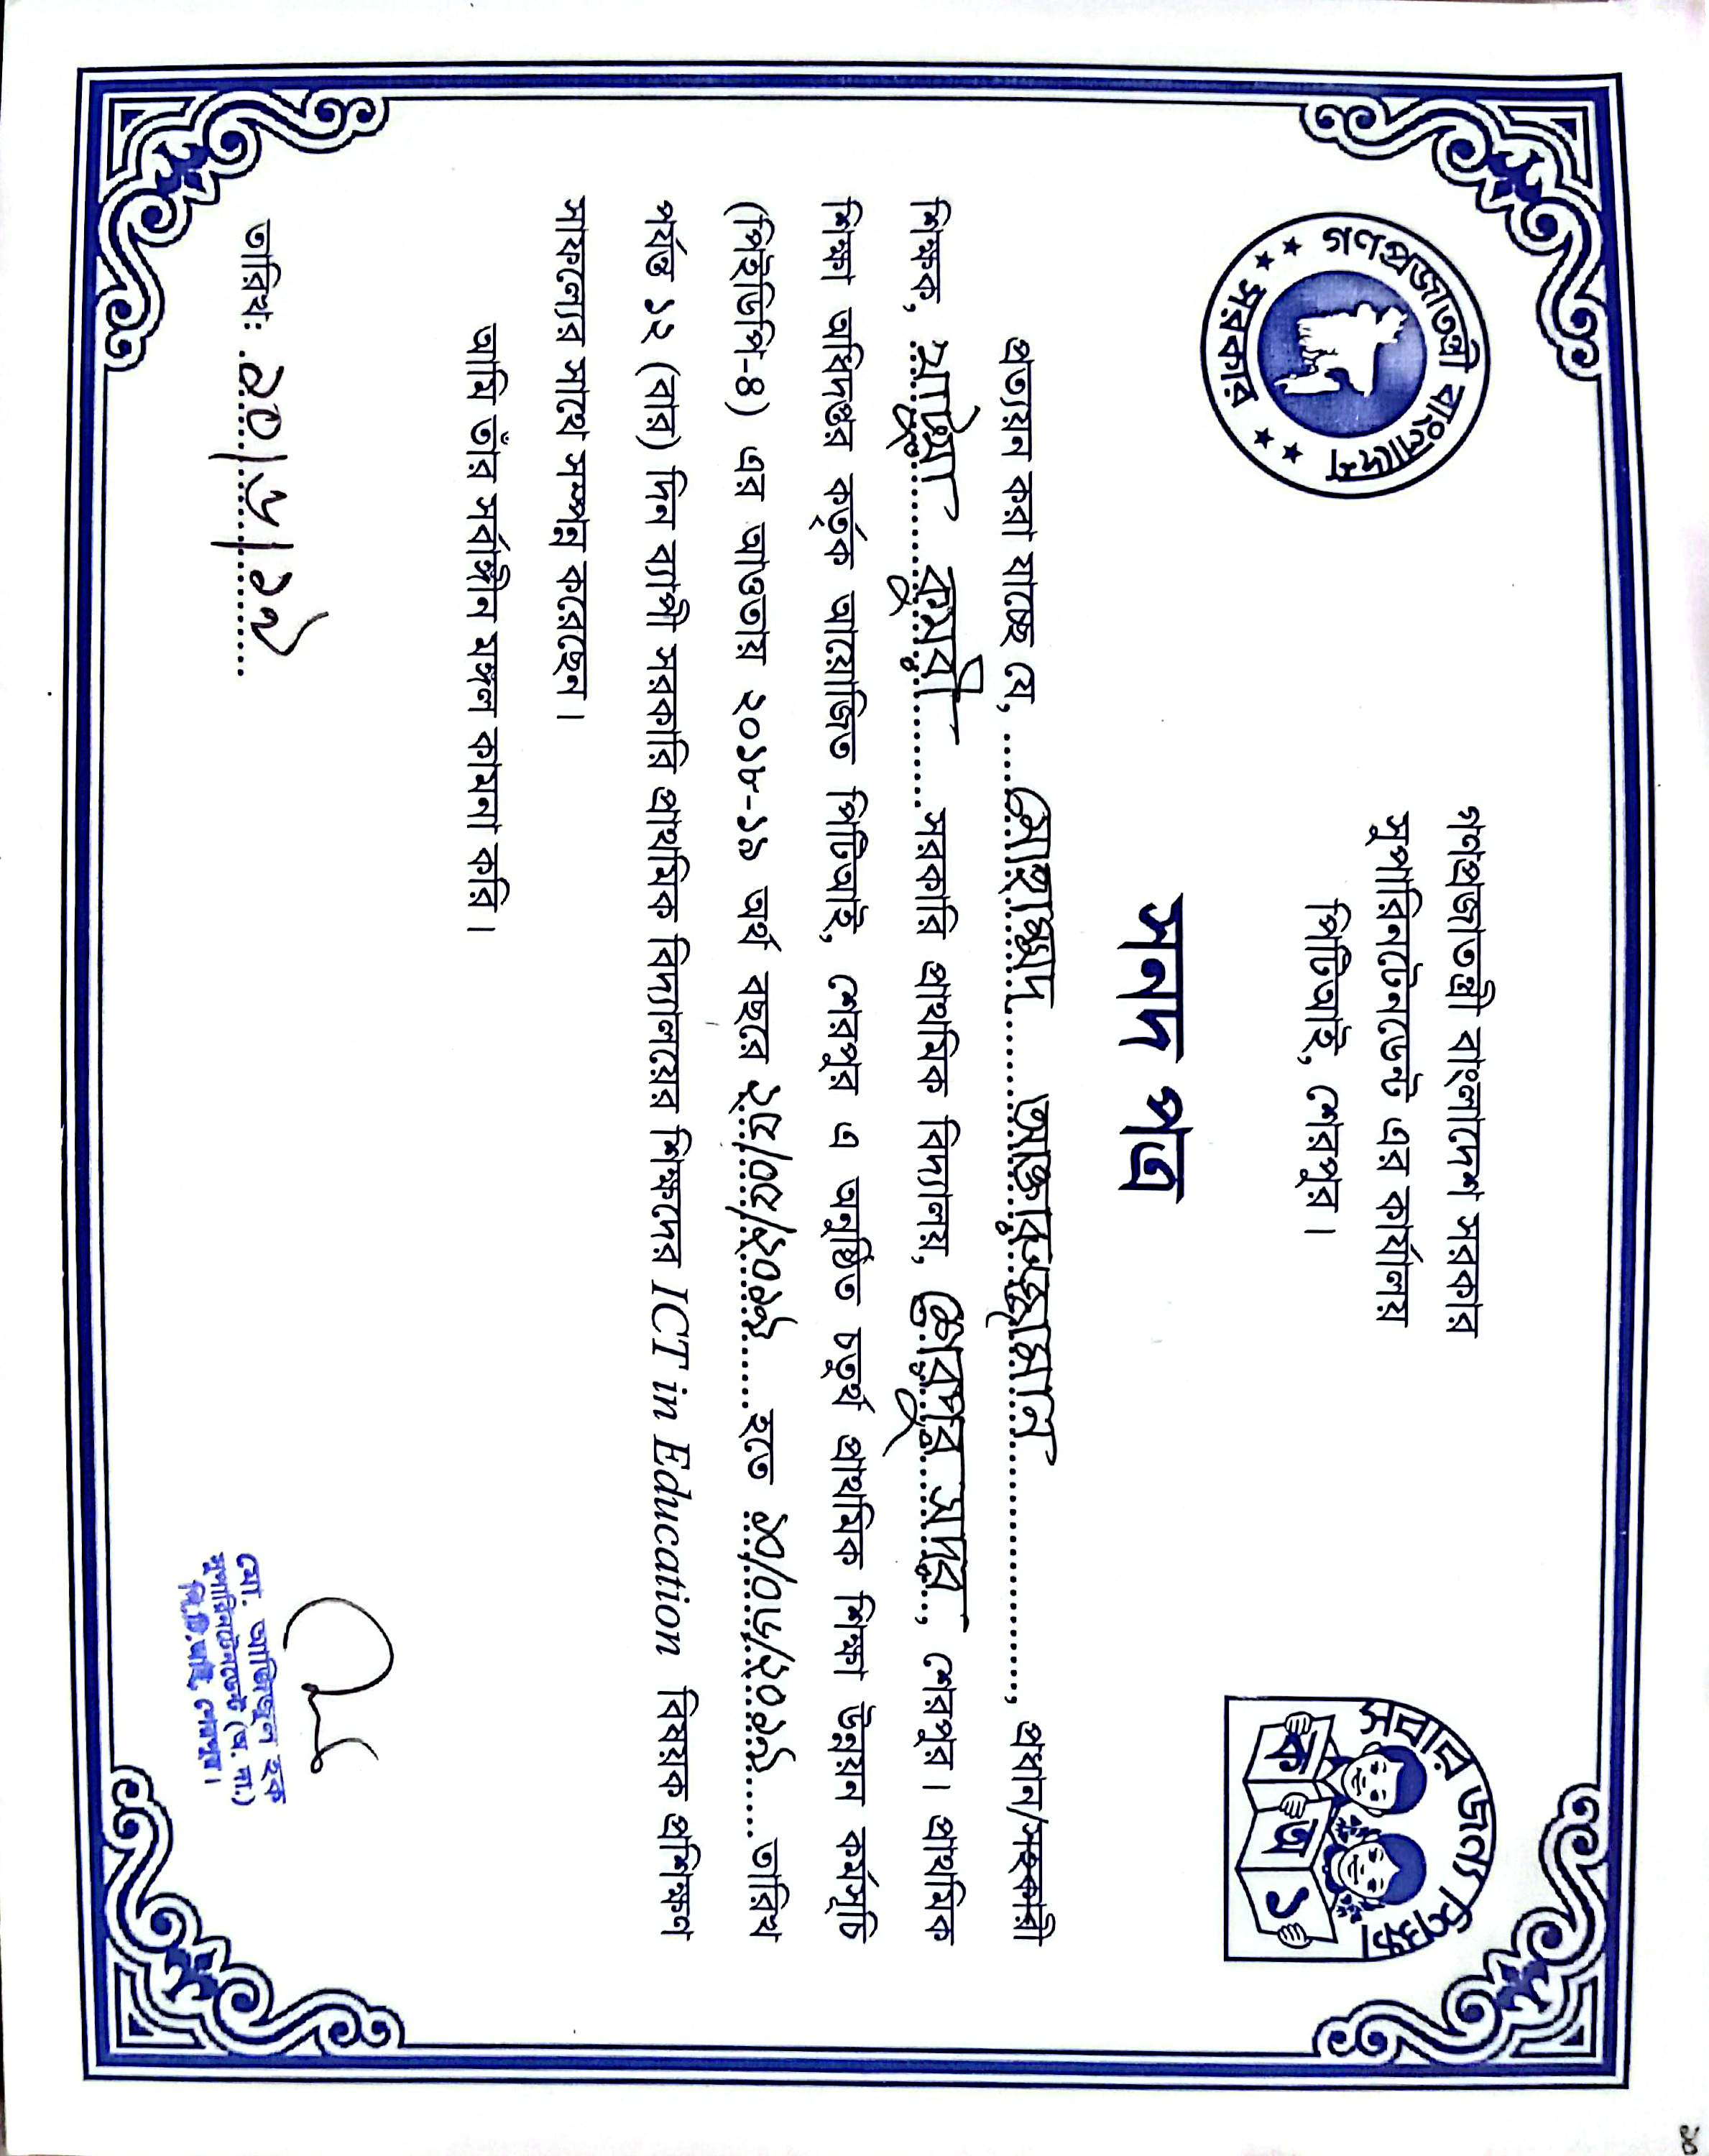 গণপ্রজাতন্ত্রী বাংলাদেশ
সরকার
সবার জন্যে শিক্ষা
ক অ ১
গণপ্রজাতন্ত্রী বাংলাদেশ সরকার
সুপারিনটেনডেন্ট এর কার্যালয়
পিটিআই, শেরপুর।
সনদ পত্র
প্রত্যয়ন করা যাচ্ছে যে, মোহাম্মাদ আক্তারুজ্জামান, প্রধান/সহকারী
শিক্ষক, কুমরী সরকারি প্রাথমিক বিদ্যালয়, শেরপুর সদর, শেরপুর। প্রাথমিক
শিক্ষা অধিদপ্তর কর্তৃক আয়োজিত পিটিআই, শেরপুর এ অনুষ্ঠিত চতুর্থ প্রাথমিক শিক্ষা উন্নয়ন কর্মসূচি
(পিইডিপি-৪) এর আওতায় ২০১৮-১৯ অর্থ বছরে ২৫/০৫/২০১৯ হতে ১০/০৬/২০১৯ তারিখ
পর্যন্ত ১২ (বার) দিন ব্যাপী সরকারি প্রাথমিক বিদ্যালয়ের শিক্ষকদের ICT in Education বিষয়ক প্রশিক্ষণ
সাফল্যের সাথে সম্পন্ন করেছেন।
আমি তাঁর সর্বাঙ্গীন মঙ্গল কামনা করি।
তারিখঃ ১০/৬/১৯
মো. আজিজুল হক
সুপারিনটেনডেন্ট (অ. দা.)
পি.টি.আই শেরপুর।
৪